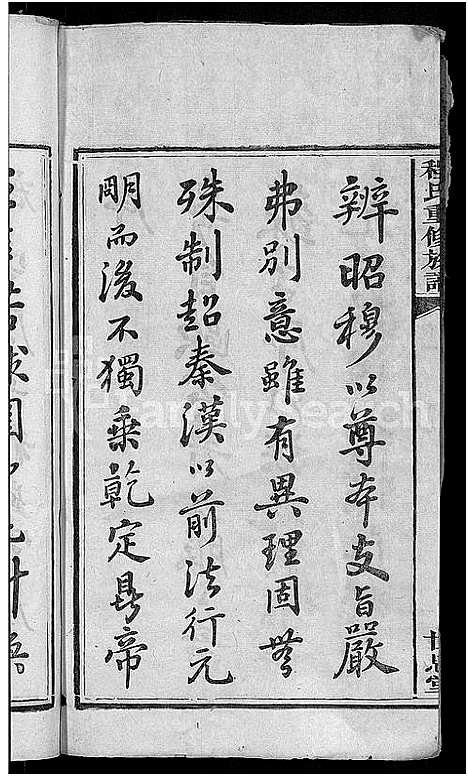 程氏重修族譜
辨昭穆以尊本支旨嚴
弗別意雖有異理固無
殊制超秦漢以前法行元
明而後不獨乘乾定鼎帝
FamilySearch